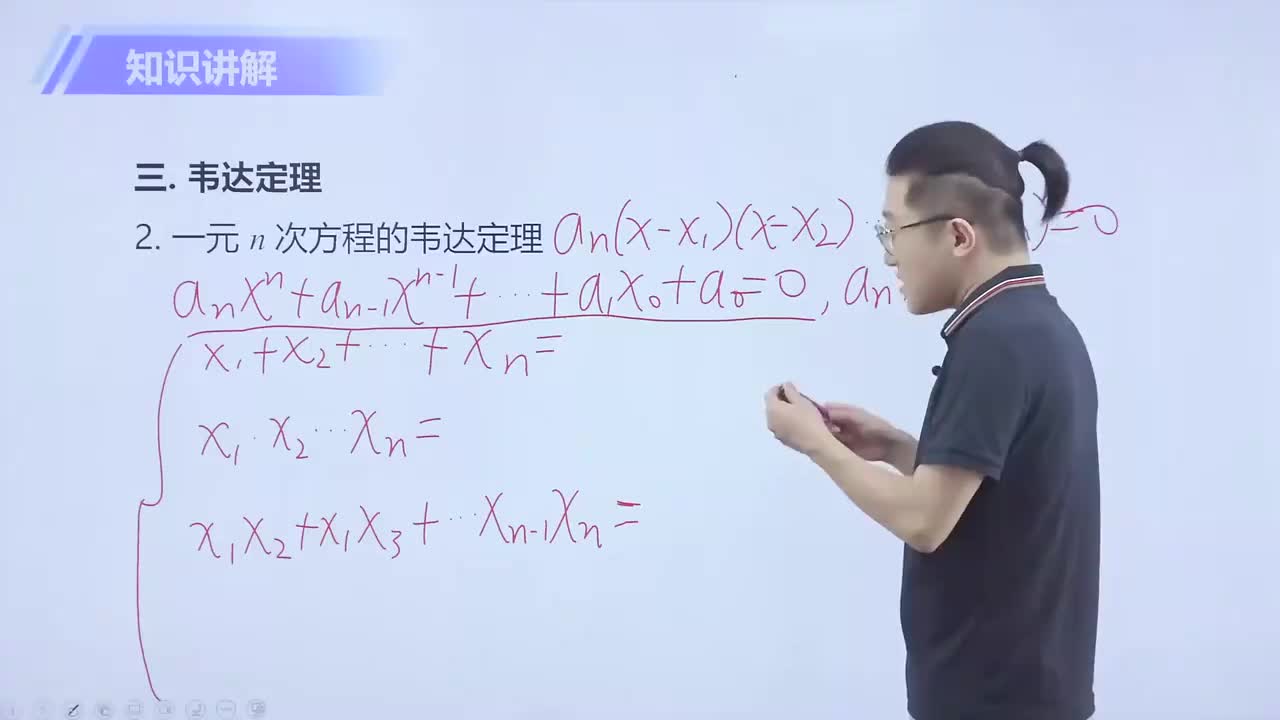 知识讲解
三. 韦达定理
2. 一元 n 次方程的韦达定理 aₙ(x-x₁)(x-x₂) ⋯ )=0
aₙxⁿ+aₙ₋₁xⁿ⁻¹+⋯+a₁x₀+a₀=0, aₙ
x₁+x₂+⋯+xₙ=
x₁·x₂⋯xₙ=
x₁x₂+x₁x₃+⋯xₙ₋₁xₙ=